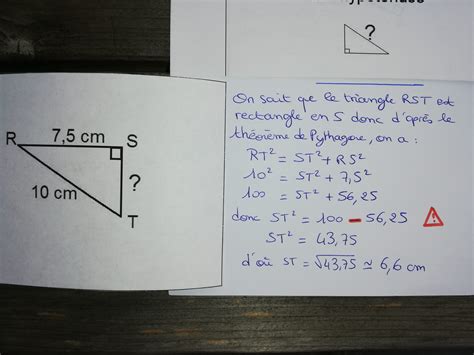 ?
7,5 cm
R
S
?
10 cm
T
On sait que le triangle RST est
rectangle en S donc d'après le
théorème de Pythagore, on a :
RT² = ST² + RS²
10² = ST² + 7,5²
100 = ST² + 56,25
donc ST² = 100 - 56,25 ⚠
ST² = 43,75
d'où ST = √43,75 ≃ 6,6 cm